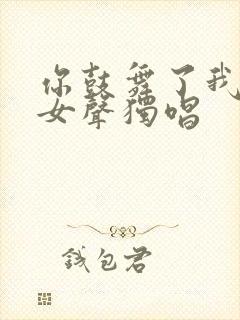 你鼓舞了我
女聲獨唱
錢包君